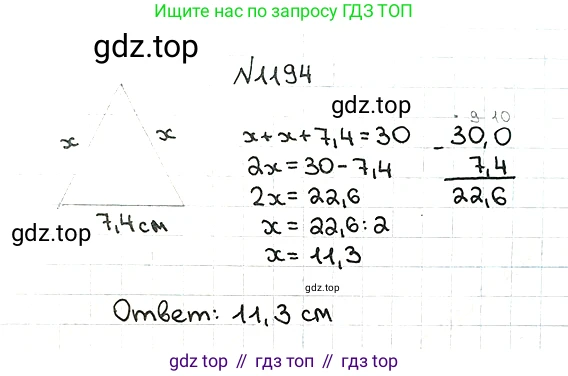 Ищите нас по запросу ГДЗ ТОП
gdz.top
N1194
gdz.top
x
x
7,4 см
gdz.top
x + x + 7,4 = 30
2x = 30 - 7,4
2x = 22,6
x = 22,6 : 2
x = 11,3
9 10
- 30,0
7,4
22,6
gdz.top
Ответ: 11,3 см
gdz top // гдз топ // gdz.top